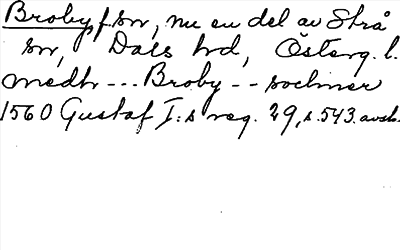 Broby f sn, nu en del av Strå
sn, Dals hd, Österg. l.
medh --- Broby -- sochner
1560 Gustaf I:s reg. 29, s. 543. avskr.